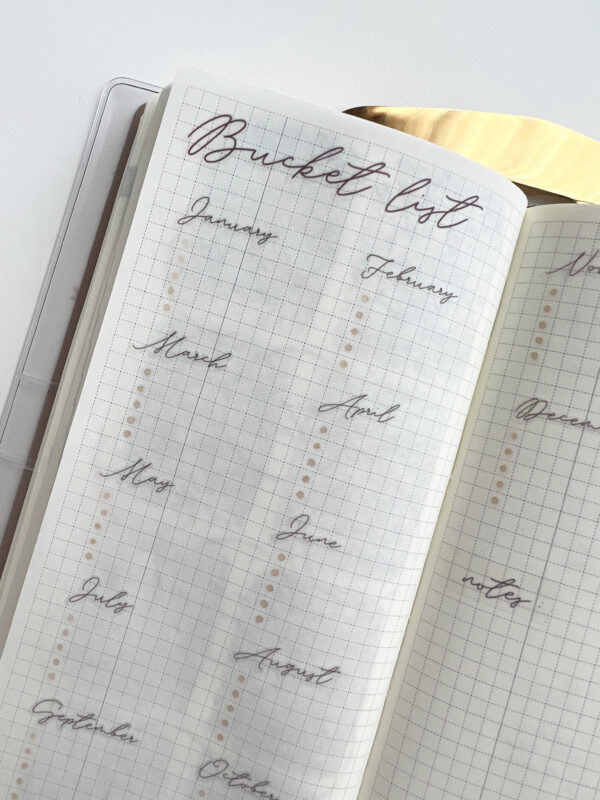 Bucket list
January
February
March
April
May
June
July
August
September
October
notes: